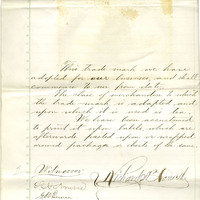 This trade mark we have
adopted for our business, and shall
commence to use from date.
The class of merchandise to which
the trade-mark is adopted, and
upon which it is used is tea.
We have been accustomed
to print it upon labels, which are
afterwards pasted upon or wrapped
around packages or chests of the same.
Witnesses